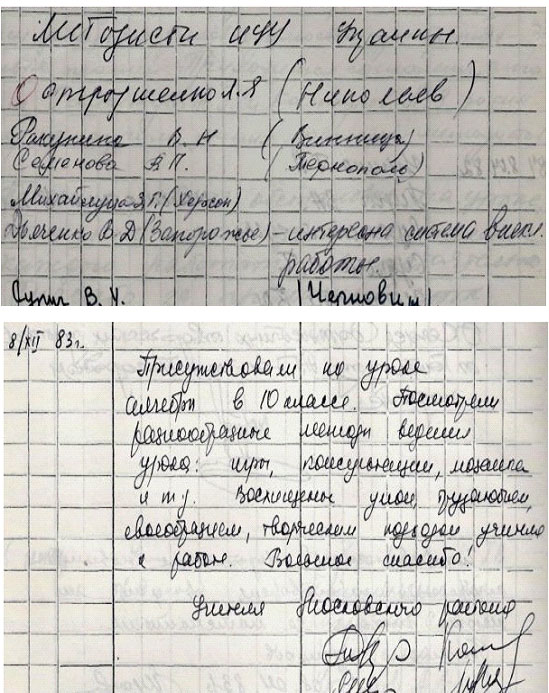 Методисты ИУУ Украины.
Остроушенко Л.Я (Николаев)
Ракунина В. Н (Винница)
Семенова А.П. (Тернополь)
Михайлуца З.Г. (Херсон)
Дьяченко В Д (Запорожье) - интересна система внекл.
работы.
В. У. (Черновцы)
8/XII 83г.
Присутствовали на уроке
алгебры в 10 классе. Посмотрели
разнообразные методы ведения
урока: игры, консультации, мозаика
и т д. Восхищены умом, трудолюбием,
своеобразием, творческим подходом учителя
к работе. Большое спасибо!
Учителя Московского района